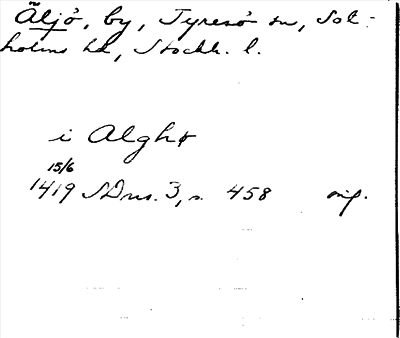 Äljö, by, Tyresö sn, Sot-
holms hd, Stockh. l.
i Alghø
15/6
1419 SDns. 3, s. 458 orig.